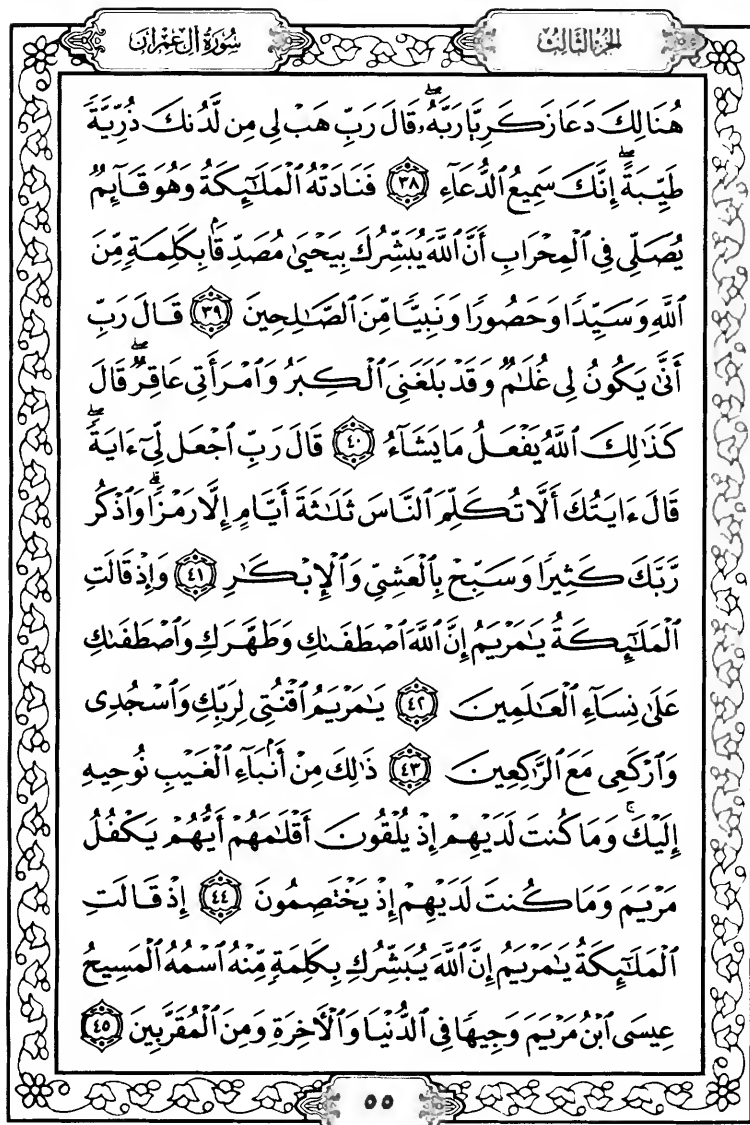 سُورَةُ آلِ عِمْرَان
الجُزْءُ الثَّالِثُ
هُنَالِكَ دَعَا زَكَرِيَّا رَبَّهُۥۖ قَالَ رَبِّ هَبْ لِى مِن لَّدُنكَ ذُرِّيَّةً
طَيِّبَةًۖ إِنَّكَ سَمِيعُ ٱلدُّعَآءِ ٣٨ فَنَادَتْهُ ٱلْمَلَٰٓئِكَةُ وَهُوَ قَآئِمٌ
يُصَلِّى فِى ٱلْمِحْرَابِ أَنَّ ٱللَّهَ يُبَشِّرُكَ بِيَحْيَىٰ مُصَدِّقًۢا بِكَلِمَةٍ مِّنَ
ٱللَّهِ وَسَيِّدًا وَحَصُورًا وَنَبِيًّا مِّنَ ٱلصَّٰلِحِينَ ٣٩ قَالَ رَبِّ
أَنَّىٰ يَكُونُ لِى غُلَٰمٌ وَقَدْ بَلَغَنِىَ ٱلْكِبَرُ وَٱمْرَأَتِى عَاقِرٌۖ قَالَ
كَذَٰلِكَ ٱللَّهُ يَفْعَلُ مَا يَشَآءُ ٤٠ قَالَ رَبِّ ٱجْعَل لِّىٓ ءَايَةًۖ
قَالَ ءَايَتُكَ أَلَّا تُكَلِّمَ ٱلنَّاسَ ثَلَٰثَةَ أَيَّامٍ إِلَّا رَمْزًاۗ وَٱذْكُر
رَّبَّكَ كَثِيرًا وَسَبِّحْ بِٱلْعَشِىِّ وَٱلْإِبْكَٰرِ ٤١ وَإِذْ قَالَتِ
ٱلْمَلَٰٓئِكَةُ يَٰمَرْيَمُ إِنَّ ٱللَّهَ ٱصْطَفَىٰكِ وَطَهَّرَكِ وَٱصْطَفَىٰكِ
عَلَىٰ نِسَآءِ ٱلْعَٰلَمِينَ ٤٢ يَٰمَرْيَمُ ٱقْنُتِى لِرَبِّكِ وَٱسْجُدِى
وَٱرْكَعِى مَعَ ٱلرَّٰكِعِينَ ٤٣ ذَٰلِكَ مِنْ أَنۢبَآءِ ٱلْغَيْبِ نُوحِيهِ
إِلَيْكَۚ وَمَا كُنتَ لَدَيْهِمْ إِذْ يُلْقُونَ أَقْلَٰمَهُمْ أَيُّهُمْ يَكْفُلُ
مَرْيَمَ وَمَا كُنتَ لَدَيْهِمْ إِذْ يَخْتَصِمُونَ ٤٤ إِذْ قَالَتِ
ٱلْمَلَٰٓئِكَةُ يَٰمَرْيَمُ إِنَّ ٱللَّهَ يُبَشِّرُكِ بِكَلِمَةٍ مِّنْهُ ٱسْمُهُ ٱلْمَسِيحُ
عِيسَى ٱبْنُ مَرْيَمَ وَجِيهًا فِى ٱلدُّنْيَا وَٱلْأَخِرَةِ وَمِنَ ٱلْمُقَرَّبِينَ ٤٥
٥٥